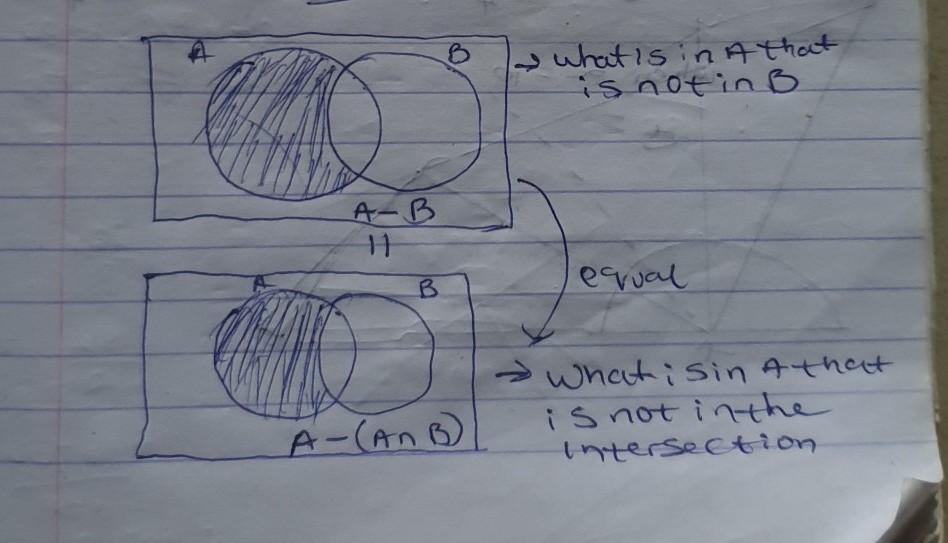 A B
→ what is in A that
is not in B
A - B
||
equal
A B
→ what is in A that
is not in the
intersection
A - (A ∩ B)